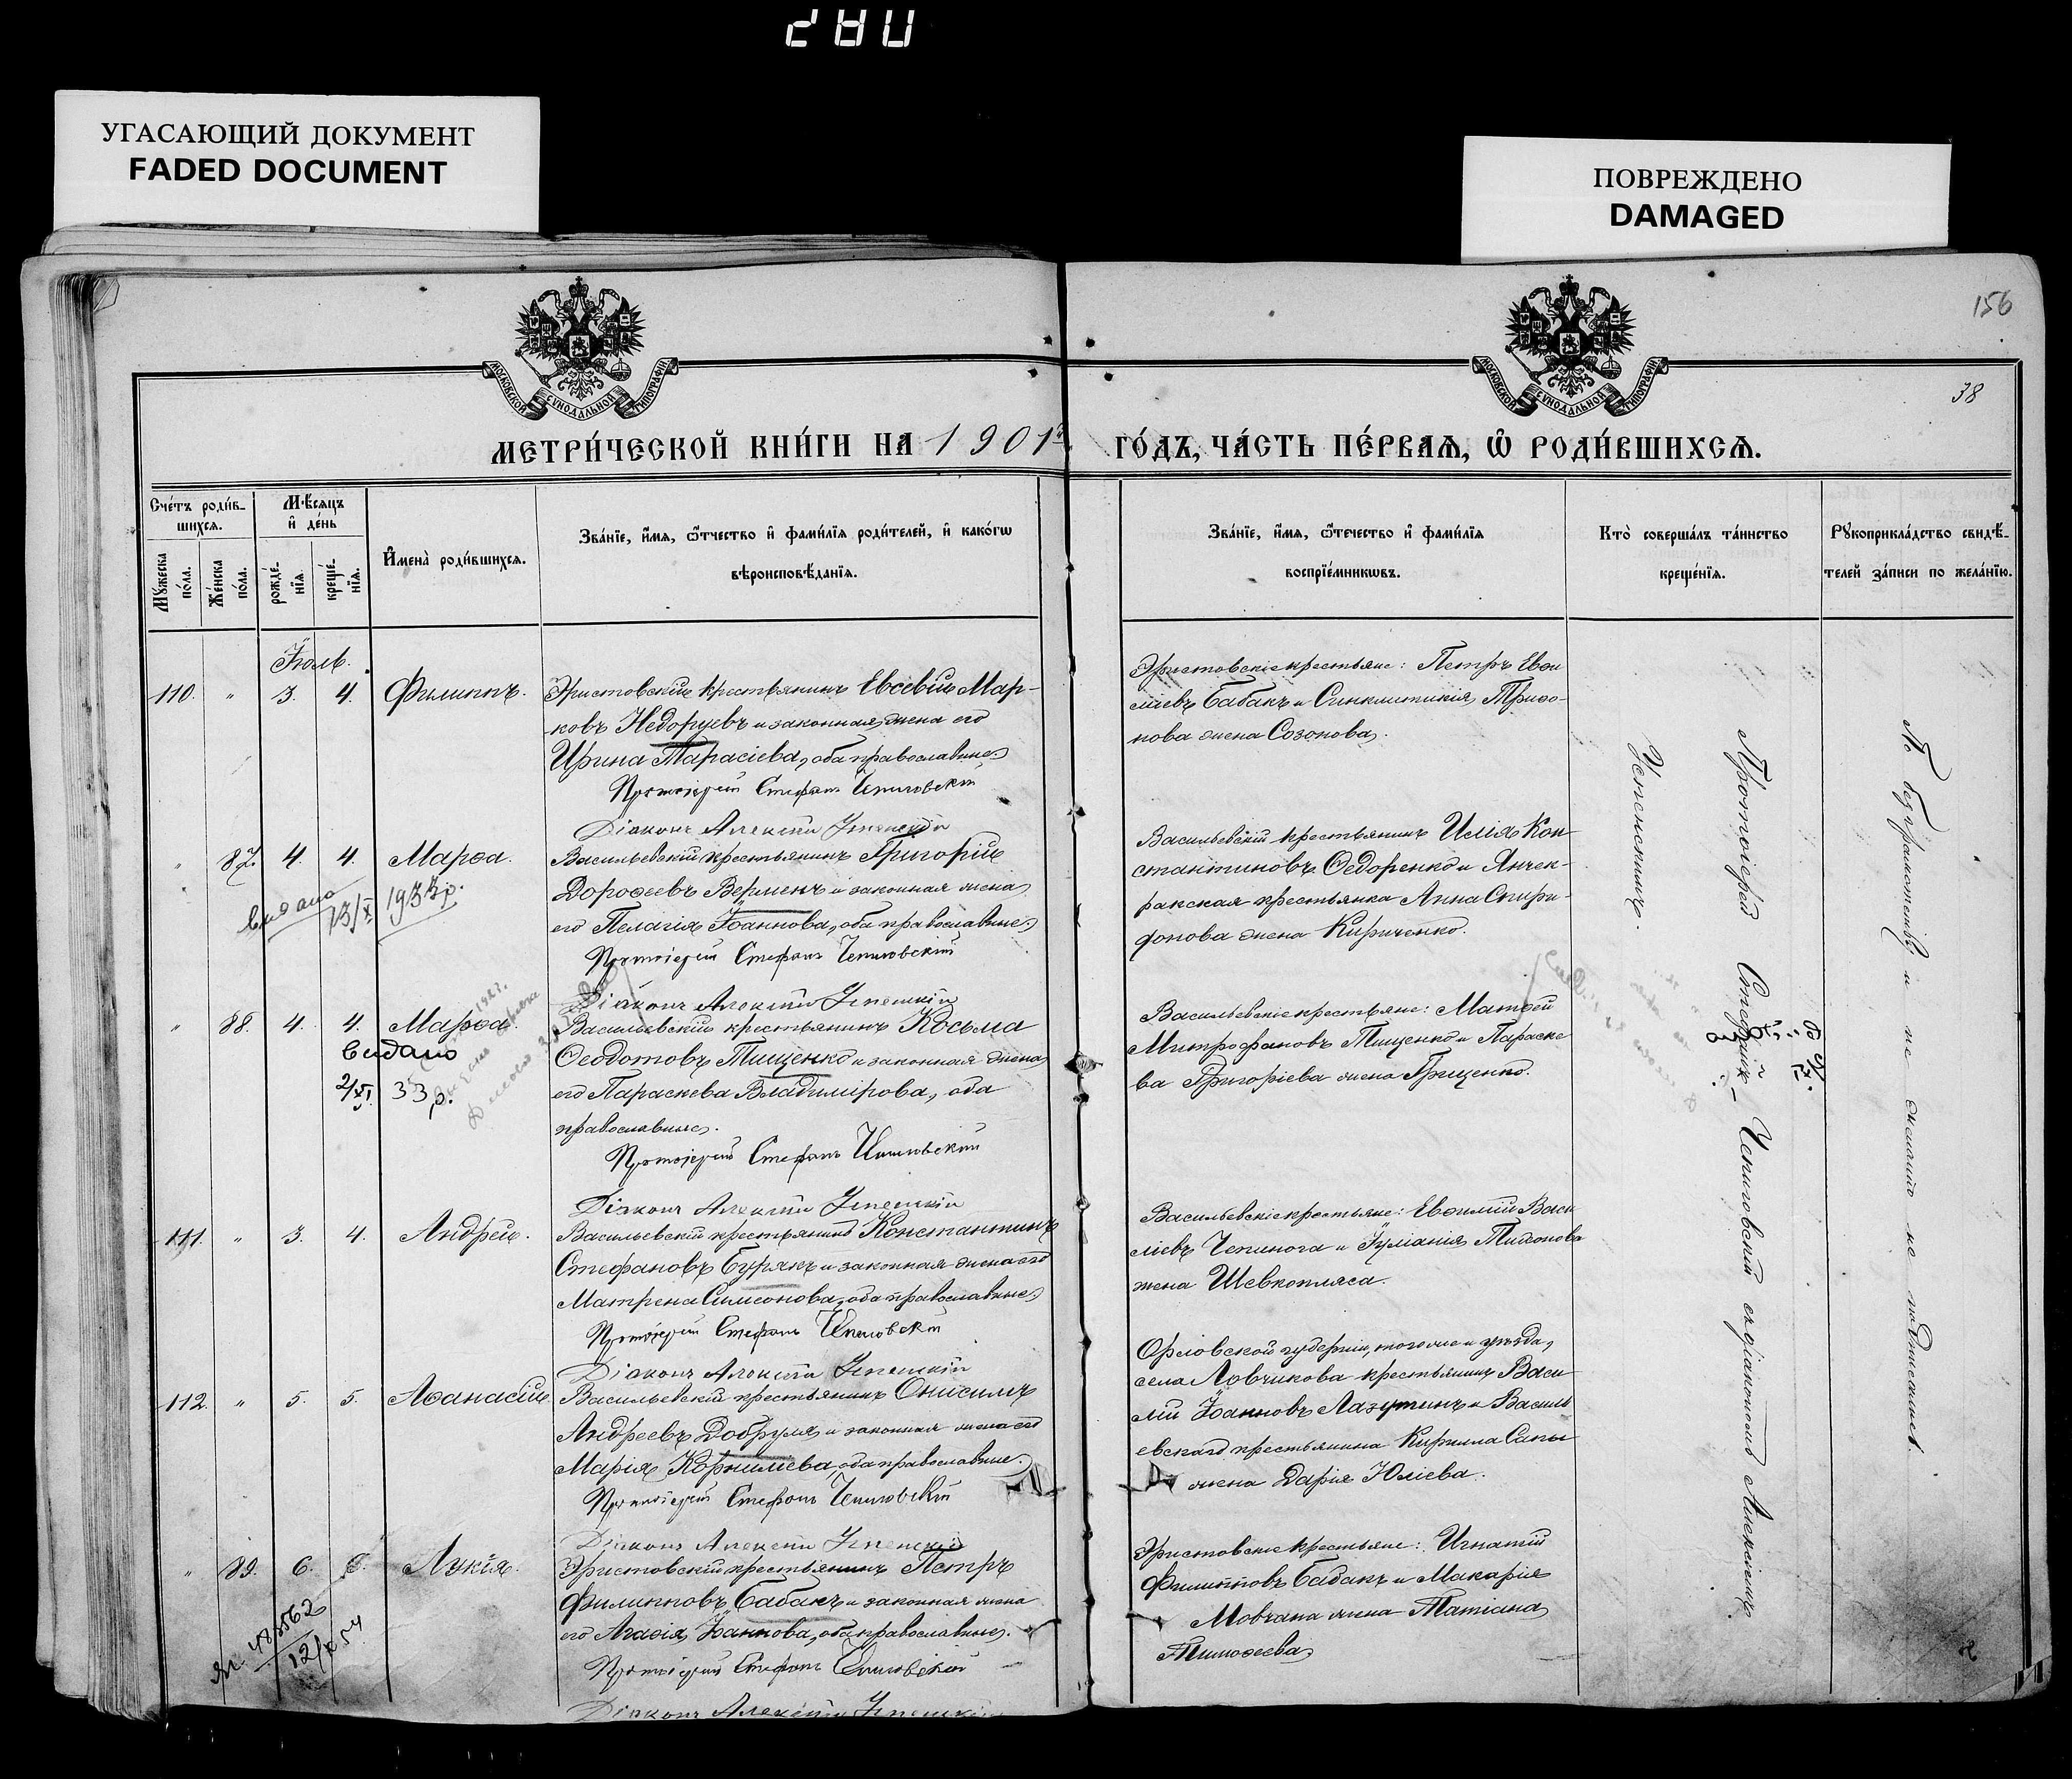 УГАСАЮЩИЙ ДОКУМЕНТ
FADED DOCUMENT
ПОВРЕЖДЕНО
DAMAGED
156
38
МОСКОВСКОЙ СѴНОДАЛЬНОЙ ТИПОГРАФІИ
МОСКОВСКОЙ СѴНОДАЛЬНОЙ ТИПОГРАФІИ
МЕТРИ́ЧЕСКОЙ КНИ́ГИ НА 1901й ГО́ДЪ, ЧА́СТЬ ПЕ́РВАѦ, Ѽ РОДИ́ВШИХСѦ.
Сче́тъ роди́в-
шихсѧ.
Мꙋ́жеска по́ла.
Же́нска по́ла.
Мѣ́сѧцъ
и҆ де́нь
рожде́-нїѧ.
креще́-нїѧ.
И҆мена̀ роди́вшихсѧ.
Зва́нїе, и҆́мѧ, ѻ҆́тчество и҆ фами́лїѧ роди́телей, и҆ како́гѡ
вѣроисповѣ́данїѧ.
Зва́нїе, и҆́мѧ, ѻ҆́течество и҆ фами́лїѧ
воспрїе́мникѡвъ.
Кто̀ соверша́лъ та́инство
креще́нїѧ.
Рꙋкоприкла́дство свидѣ́-
телей за́писи по жела́нїю.
Іюль.
110. " 3. 4. Филиппъ.
Эристовскій крестьянинъ Евсевій Мар-
ковъ Недоруевъ и законная жена его
Ирина Тарасіева, оба православные.
Протоіерей Стефанъ Чепиговскій
Діаконъ Алексій Успенскій
Эристовскіе крестьяне: Петръ Евѳи
міевъ Бабакъ и Синклитикія Трифо-
нова жена Созонова.
" 87. 4. 4. Марѳа.
видано 13/X 1933р.
Васильевскій крестьянинъ Григорій
Дороѳеевъ Верменъ и законная жена
его Пелагія Іоаннова, оба православные.
Протоіерей Стефанъ Чепиговскій
Діаконъ Алексій Успенскій
Васильевскій крестьянинъ Илія Кон-
стантиновъ Ѳедоренко и Янчек-
ракская крестьянка Анна Спири-
донова жена Кириченко.
" 88. 4. 4. Марѳа.
видано
2/XI 33р.
Васильевскій крестьянинъ Косьма
Ѳеодотовъ Тищенко и законная жена
его Параскева Владимірова, оба
православные.
Протоіерей Стефанъ Чепиговскій
Діаконъ Алексій Успенскій
Васильевскіе крестьяне: Матѳей
Митрофановъ Тищенко и Параске
ва Григоріева жена Грищенко.
111. " 3. 4. Андрей.
Васильевскій крестьянинъ Константинъ
Стефановъ Бурякъ и законная жена его
Матрена Симеонова, оба православные.
Протоіерей Стефанъ Чепиговскій
Діаконъ Алексій Успенскій
Васильевскіе крестьяне: Евѳимій Васи
ліевъ Чепинога и Іуліанія
жена Шевкопляса.
112. " 5. 5. Аѳанасій.
Васильевскій крестьянинъ Онисимъ
Андреевъ Добруля и законная жена его
Марія Корниліева, оба православные.
Протоіерей Стефанъ Чепиговскій
Діаконъ Алексій Успенскій
Орловской губерніи, того же и уѣзда,
села Ловчикова крестьянинъ Васи
лій Іоанновъ Лазутинъ и Василь
евскаго крестьянина Кирилла Сапы
жена Дарія Юліева.
" 89. 6. 6. Лукія.
12/X 54
Эристовскій крестьянинъ Петръ
Филипповъ Бабакъ и законная жена
его Агаѳія Іоаннова, оба православные.
Протоіерей Стефанъ Чепиговскій
Діаконъ Алексій Успенскій
Эристовскіе крестьяне: Игнатій
Филипповъ Бабакъ и Макарія
Мовчана жена Татіана
Тимоѳеева
Протоіерей Стефанъ Чепиговскій съ діакономъ Алексіемъ
Успенскимъ.
По безграмотству и не желанію не подписались